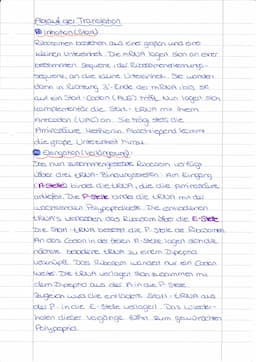 Ablauf der Translation
① Initiation (Start)
Ribosomen bestehen aus einer großen und einer
kleinen Untereinheit. Die mRNA lagert sich an einer
bestimmten Sequenz, der Ribosomenerkennungs-
sequenz, an die kleine Untereinheit. Sie wandert
dann in Richtung 3'-Ende der mRNA, bis sie
auf ein Start-Codon (AUG) trifft. Nun lagert sich
komplementär die Start-tRNA mit ihrem
Anticodon (UAC) an. Sie trägt stets die
Aminosäure Methionin. Abschließend kommt
die große Untereinheit hinzu.
② Elongation (Verlängerung)
Das nun zusammengesetzte Ribosom verfügt
über drei tRNA-Bindungsstellen: Am Eingang
(A-Stelle) bindet die tRNA, die die Aminosäure
anliefert. Die P-Stelle bindet die tRNA mit der
wachsenden Polypeptidkette. Die entladenen
tRNA's verlassen das Ribosom über die E-Stelle.
Die Start-tRNA besetzt die P-Stelle des Ribosoms.
An das Codon in der freien A-Stelle lagert sich die
nächste beladene tRNA zu einem Dipeptid
verknüpft. Das Ribosom wandert nun ein Codon
weiter. Die tRNA verlagert sich zusammen mit
dem Dipeptid aus der A in die P Stelle.
Zugleich wird die entladene Start-tRNA aus
der P- in die E-Stelle verlagert. Das Wieder-
holen dieser Vorgänge führt zum gewünschten
Polypeptid.